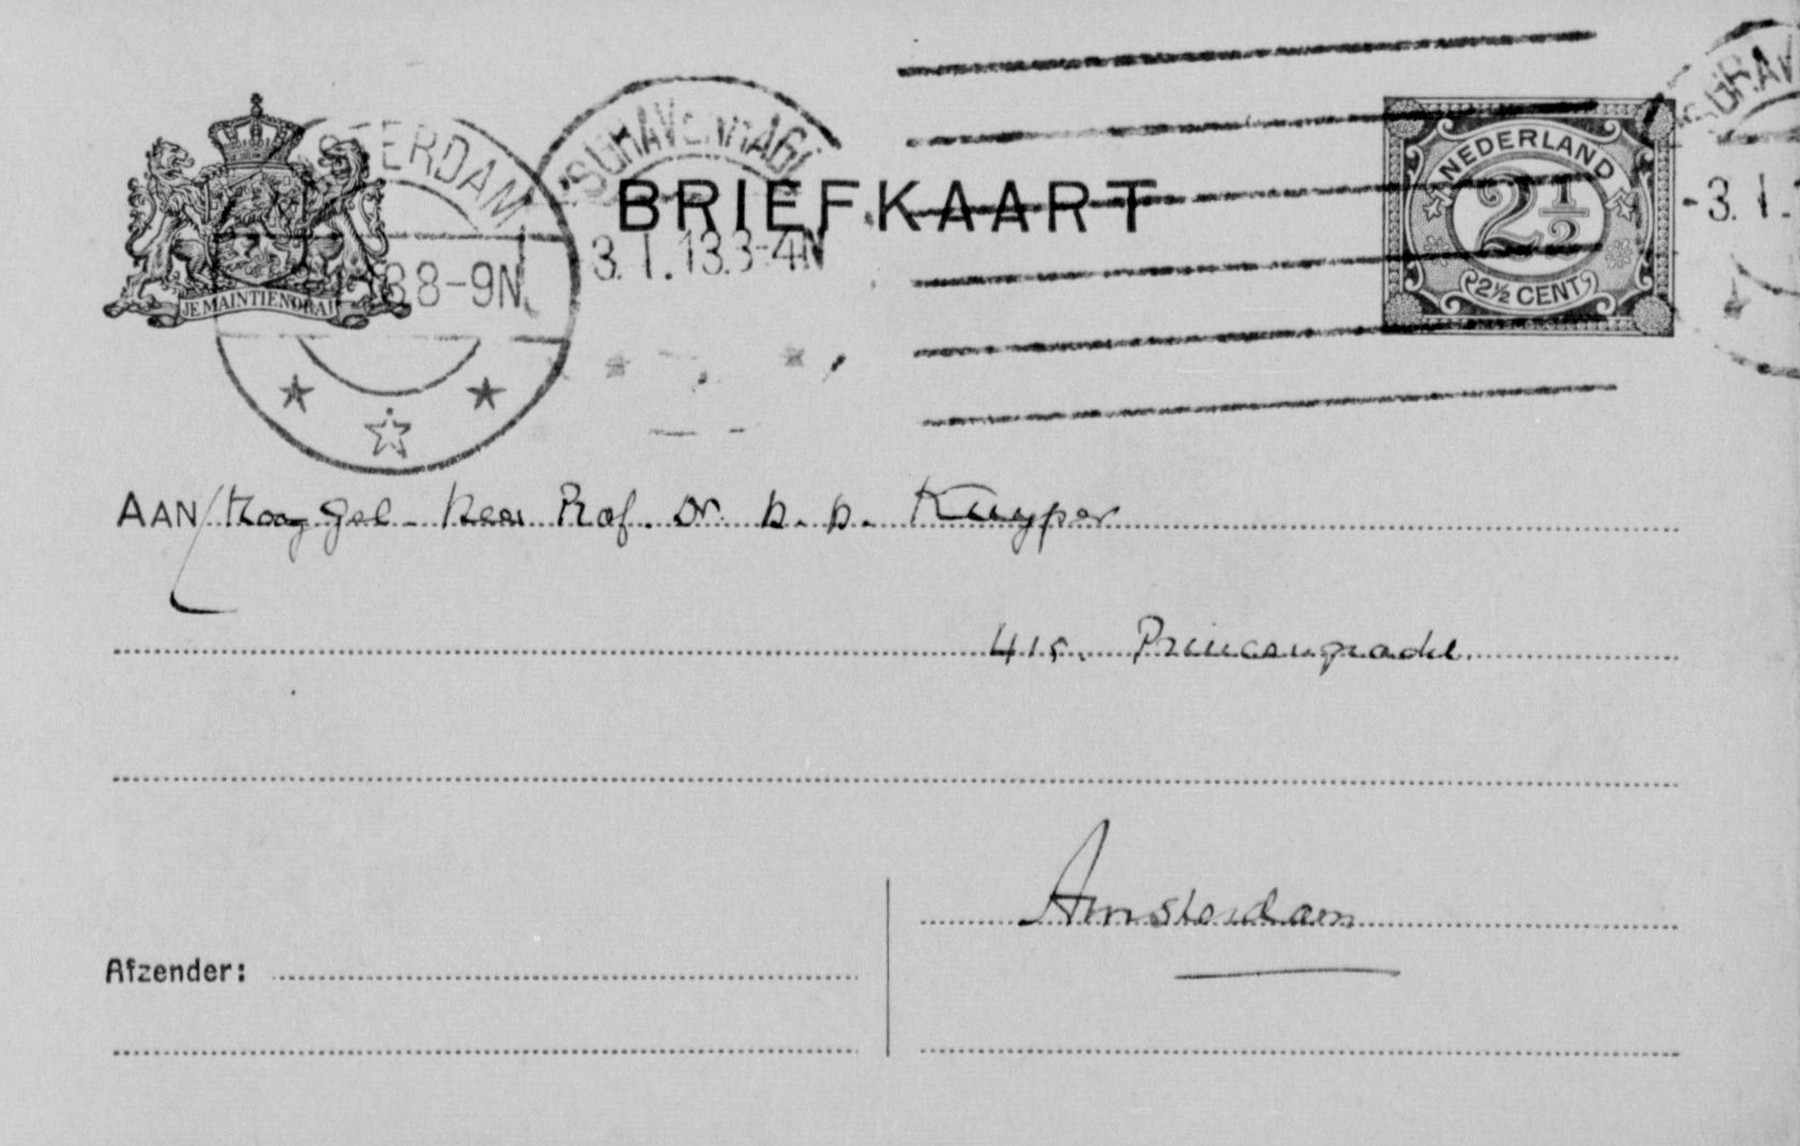 STERDAM
'SGRAVENHAGE
'SGRAV
BRIEFKAART
NEDERLAND
2 1/2
2½ CENT
3.I.13.3-4N
-3.I.1
8-9N.
JE MAINTIENDRAI
AAN Hoog Gel. Heer Prof. Dr. H. H. Kuyper
415. Prinsengracht
Amsterdam
Afzender: